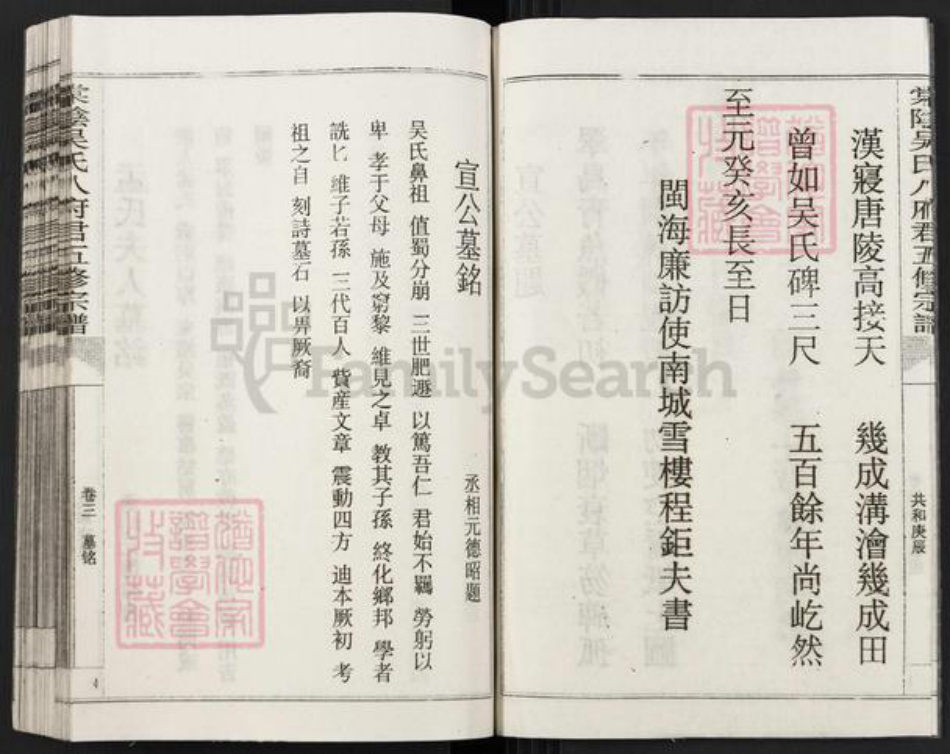 棠陰吳氏八府君五修宗譜
共和庚辰
漢寢唐陵高接天 幾成溝澮幾成田
曾如吳氏碑三尺 五百餘年尚屹然
至元癸亥長至日
閩海廉訪使南城雪樓程鉅夫書
宣公墓銘
丞相元德昭題
吳氏鼻祖 值蜀分崩 三世肥遯 以篤吾仁 君始不羈 勞躬以
卑 孝于父母 施及窮黎 維見之卓 教其子孫 終化鄉邦 學者
詵匕 維子若孫 三代百人 貲産文章 震動四方 迪本厥初 考
祖之自 刻詩墓石 以畀厥裔
棠陰吳氏八府君五修宗譜
卷三 墓铭
4
FamilySearch